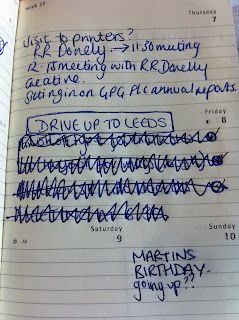 week 27
Thursday
7
Visit to printers?
RR Donely. → 11:30 meeting
12-15 meeting with R.R.Donelly
creative.
Sitting in on GPG Plc annual reports
Friday
8
DRIVE UP TO LEEDS
Saturday
9
Sunday
10
MARTINS
BIRTHDAY.
going up??